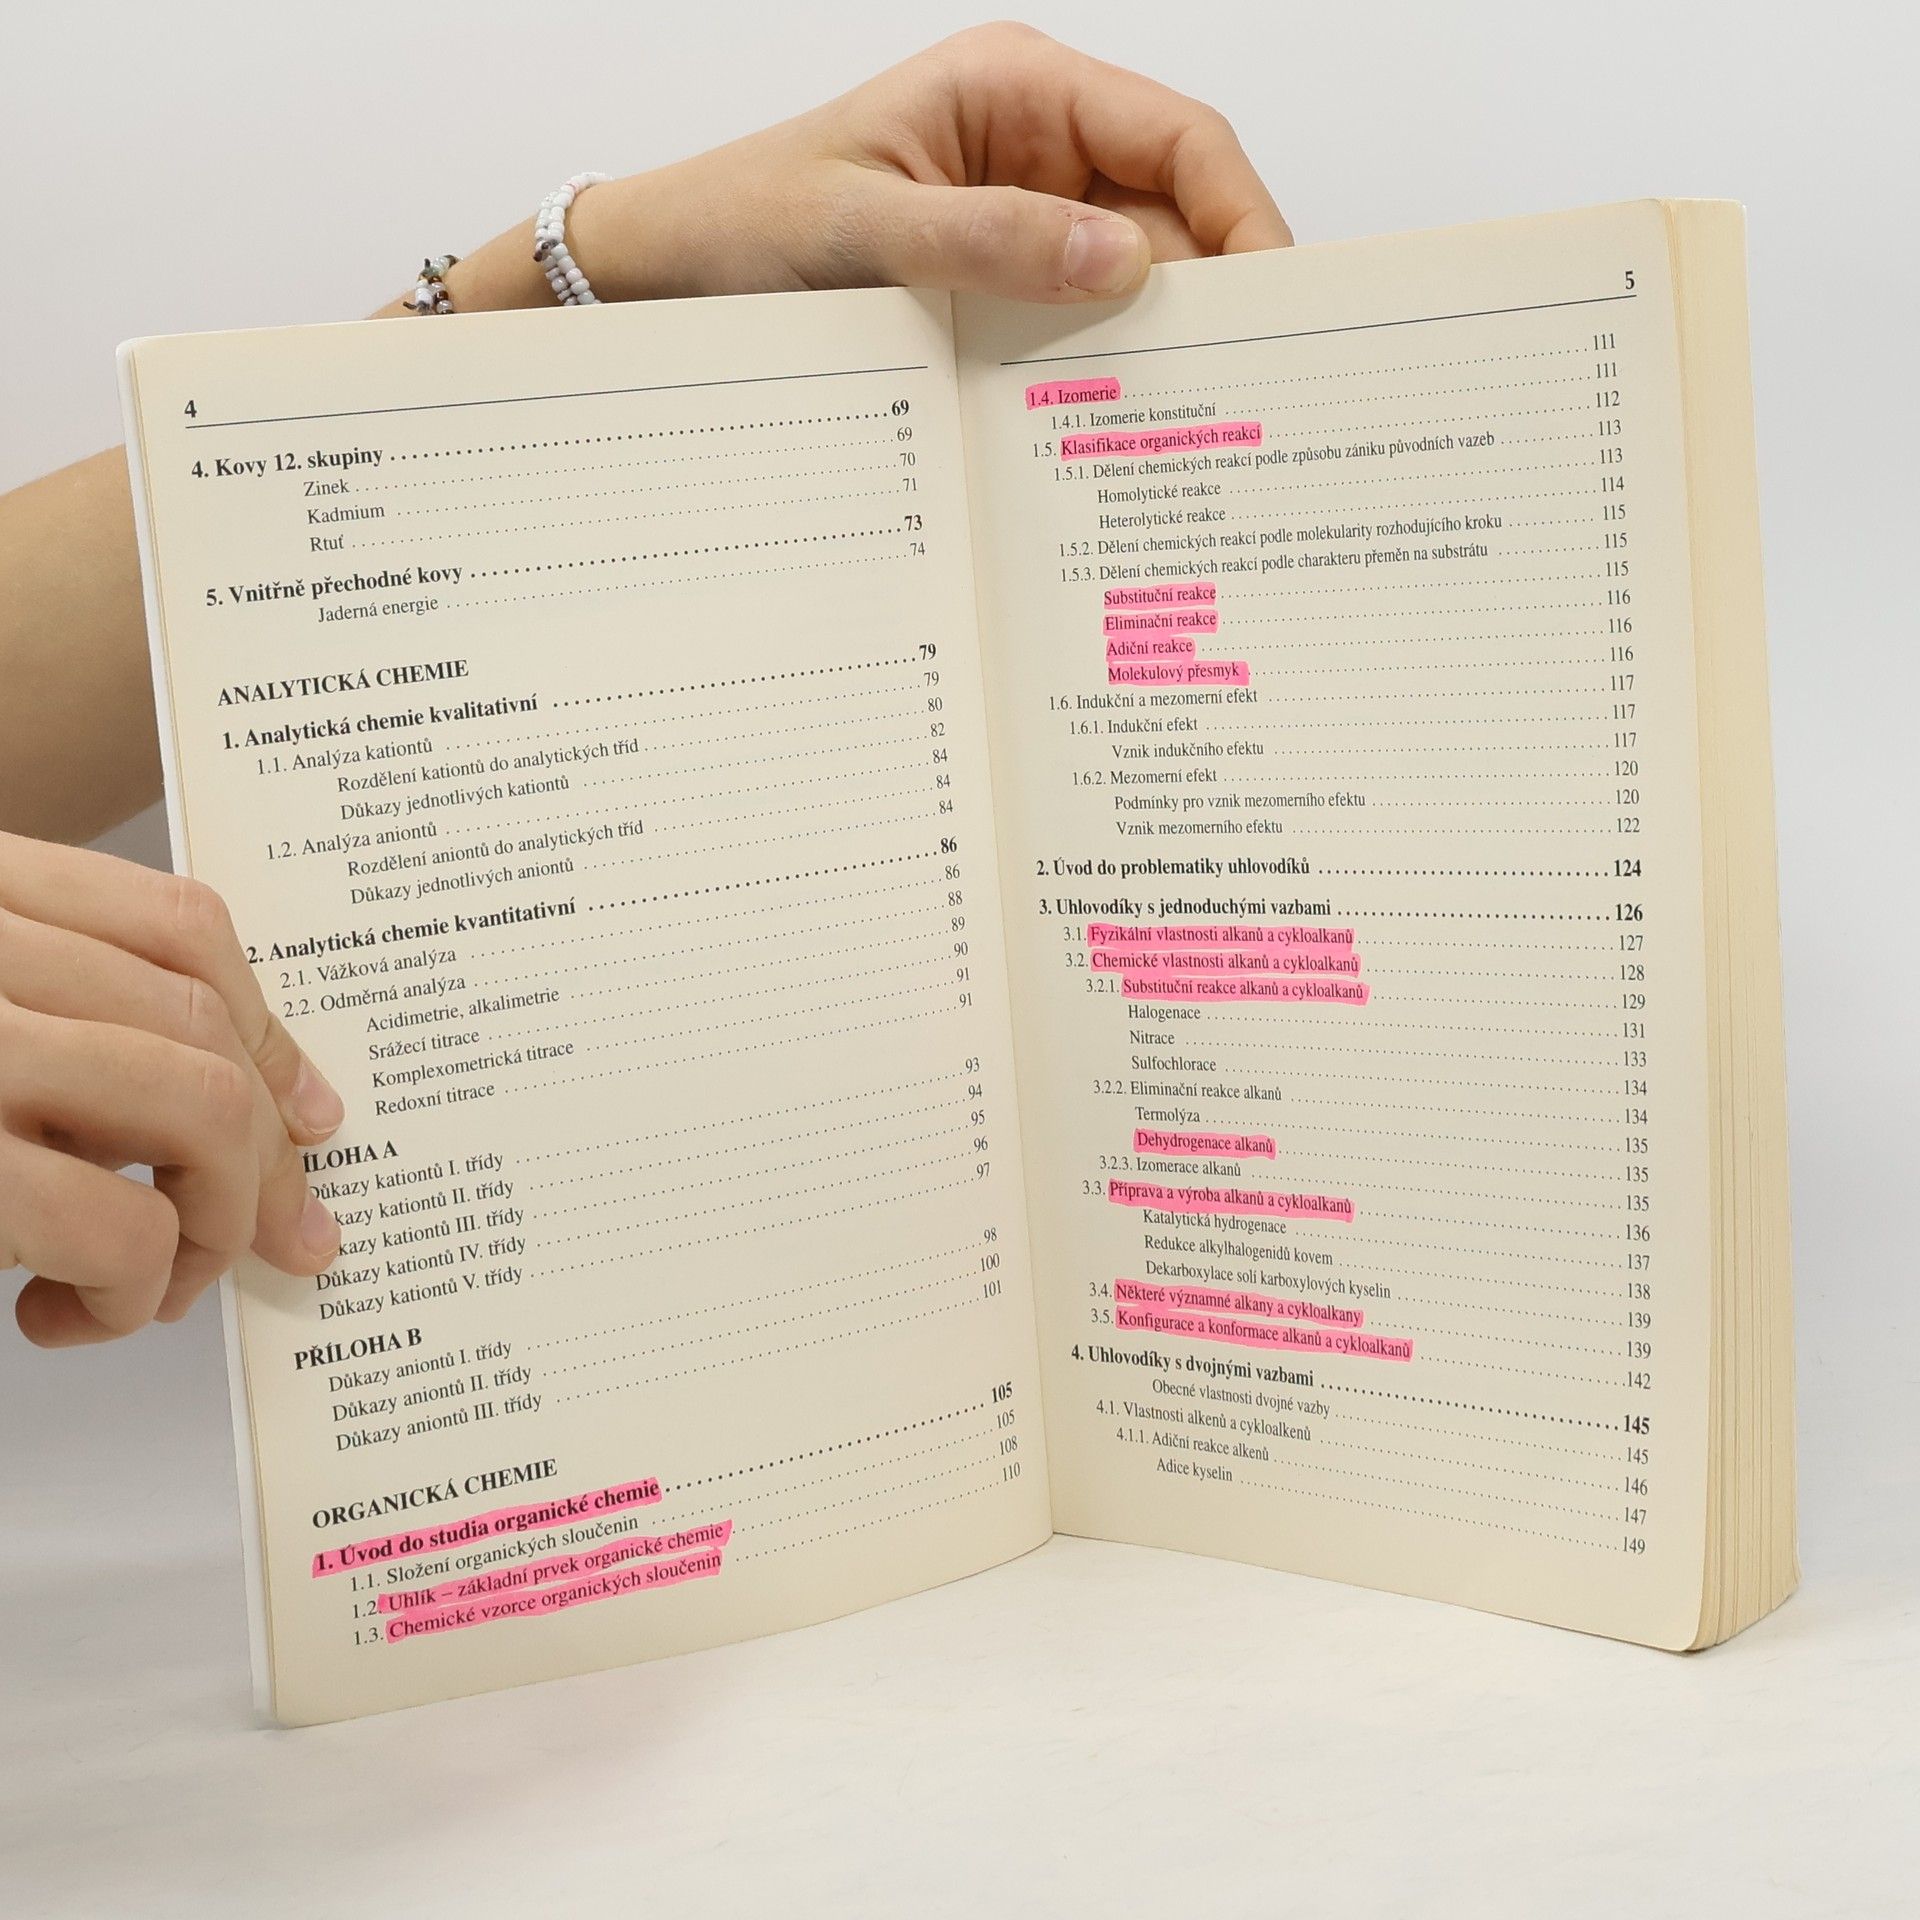 4
4. Kovy 12. skupiny 69
Zinek 69
Kadmium 70
Rtuť 71
5. Vnitřně přechodné kovy 73
Jaderná energie 74
ANALYTICKÁ CHEMIE
1. Analytická chemie kvalitativní 79
1.1. Analýza kationtů 79
Rozdělení kationtů do analytických tříd 80
Důkazy jednotlivých kationtů 82
1.2. Analýza aniontů 84
Rozdělení aniontů do analytických tříd 84
Důkazy jednotlivých aniontů 84
2. Analytická chemie kvantitativní 86
2.1. Vážková analýza 86
2.2. Odměrná analýza 88
Acidimetrie, alkalimetrie 89
Srážecí titrace 90
Komplexometrická titrace 91
Redoxní titrace 91
ÍLOHA A
Důkazy kationtů I. třídy 93
kazy kationtů II. třídy 94
kazy kationtů III. třídy 95
Důkazy kationtů IV. třídy 96
Důkazy kationtů V. třídy 97
PŘÍLOHA B
Důkazy aniontů I. třídy 98
Důkazy aniontů II. třídy 100
Důkazy aniontů III. třídy 101
ORGANICKÁ CHEMIE
1. Úvod do studia organické chemie 105
1.1. Složení organických sloučenin 105
1.2. Uhlík – základní prvek organické chemie 108
1.3. Chemické vzorce organických sloučenin 110
5
1.4. Izomerie 111
1.4.1. Izomerie konstituční 111
1.5. Klasifikace organických reakcí 112
1.5.1. Dělení chemických reakcí podle způsobu zániku původních vazeb 113
Homolytické reakce 113
Heterolytické reakce 114
1.5.2. Dělení chemických reakcí podle molekularity rozhodujícího kroku 115
1.5.3. Dělení chemických reakcí podle charakteru přeměn na substrátu 115
Substituční reakce 115
Eliminační reakce 116
Adiční reakce 116
Molekulový přesmyk 116
1.6. Indukční a mezomerní efekt 117
1.6.1. Indukční efekt 117
Vznik indukčního efektu 117
1.6.2. Mezomerní efekt 120
Podmínky pro vznik mezomerního efektu 120
Vznik mezomerního efektu 122
2. Úvod do problematiky uhlovodíků 124
3. Uhlovodíky s jednoduchými vazbami 126
3.1. Fyzikální vlastnosti alkanů a cykloalkanů 127
3.2. Chemické vlastnosti alkanů a cykloalkanů 128
3.2.1. Substituční reakce alkanů a cykloalkanů 129
Halogenace 131
Nitrace 133
Sulfochlorace 134
3.2.2. Eliminační reakce alkanů 134
Termolýza 135
Dehydrogenace alkanů 135
3.2.3. Izomerace alkanů 135
3.3. Příprava a výroba alkanů a cykloalkanů 136
Katalytická hydrogenace 137
Redukce alkylhalogenidů kovem 138
Dekarboxylace solí karboxylových kyselin 139
3.4. Některé významné alkany a cykloalkany 139
3.5. Konfigurace a konformace alkanů a cykloalkanů 142
4. Uhlovodíky s dvojnými vazbami 145
Obecné vlastnosti dvojné vazby 145
4.1. Vlastnosti alkenů a cykloalkenů 146
4.1.1. Adiční reakce alkenů 147
Adice kyselin 149